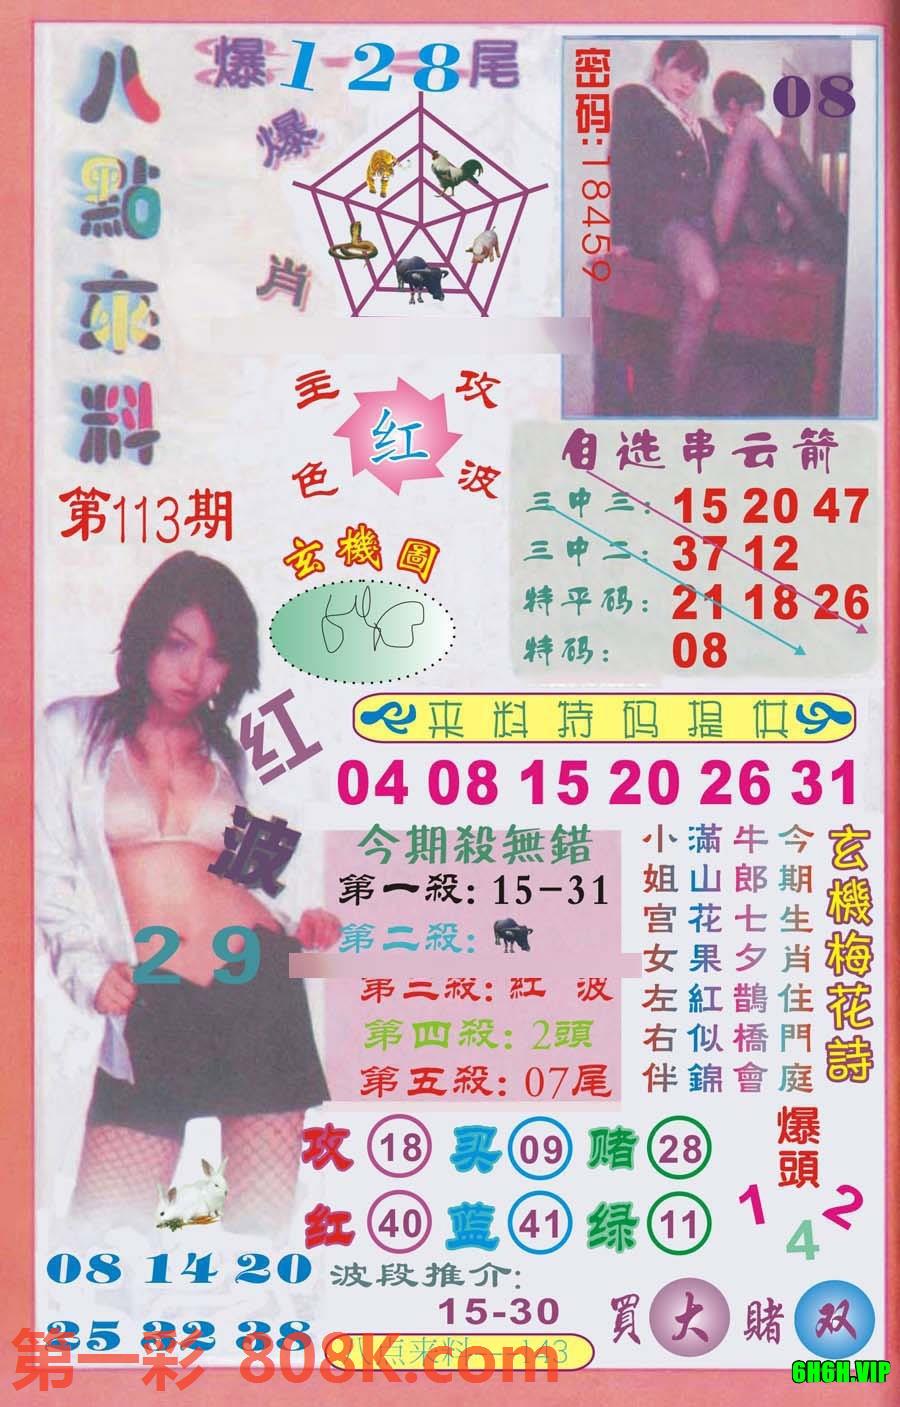 八點來料
爆128尾
爆肖
密码:18459
08
主攻
红
色波
第113期
玄機圖
自选串云箭
三中三: 15 20 47
三中二: 37 12
特平码: 21 18 26
特码: 08
红波
29
来料特码提供
04 08 15 20 26 31
今期殺無錯
第一殺: 15-31
第二殺:
第三殺: 紅 波
第四殺: 2頭
第五殺: 07尾
玄機梅花詩
今期生肖住門庭
牛郎七夕鵲橋會
滿山花果紅似錦
小姐宫女左右伴
攻 18 买 09 赌 28
红 40 蓝 41 绿 11
爆頭
1 4 2
08 14 20
25 32 38
波段推介:
15-30
買大賭双
八点来料—143
第一彩 808K.com
6H6H.VIP